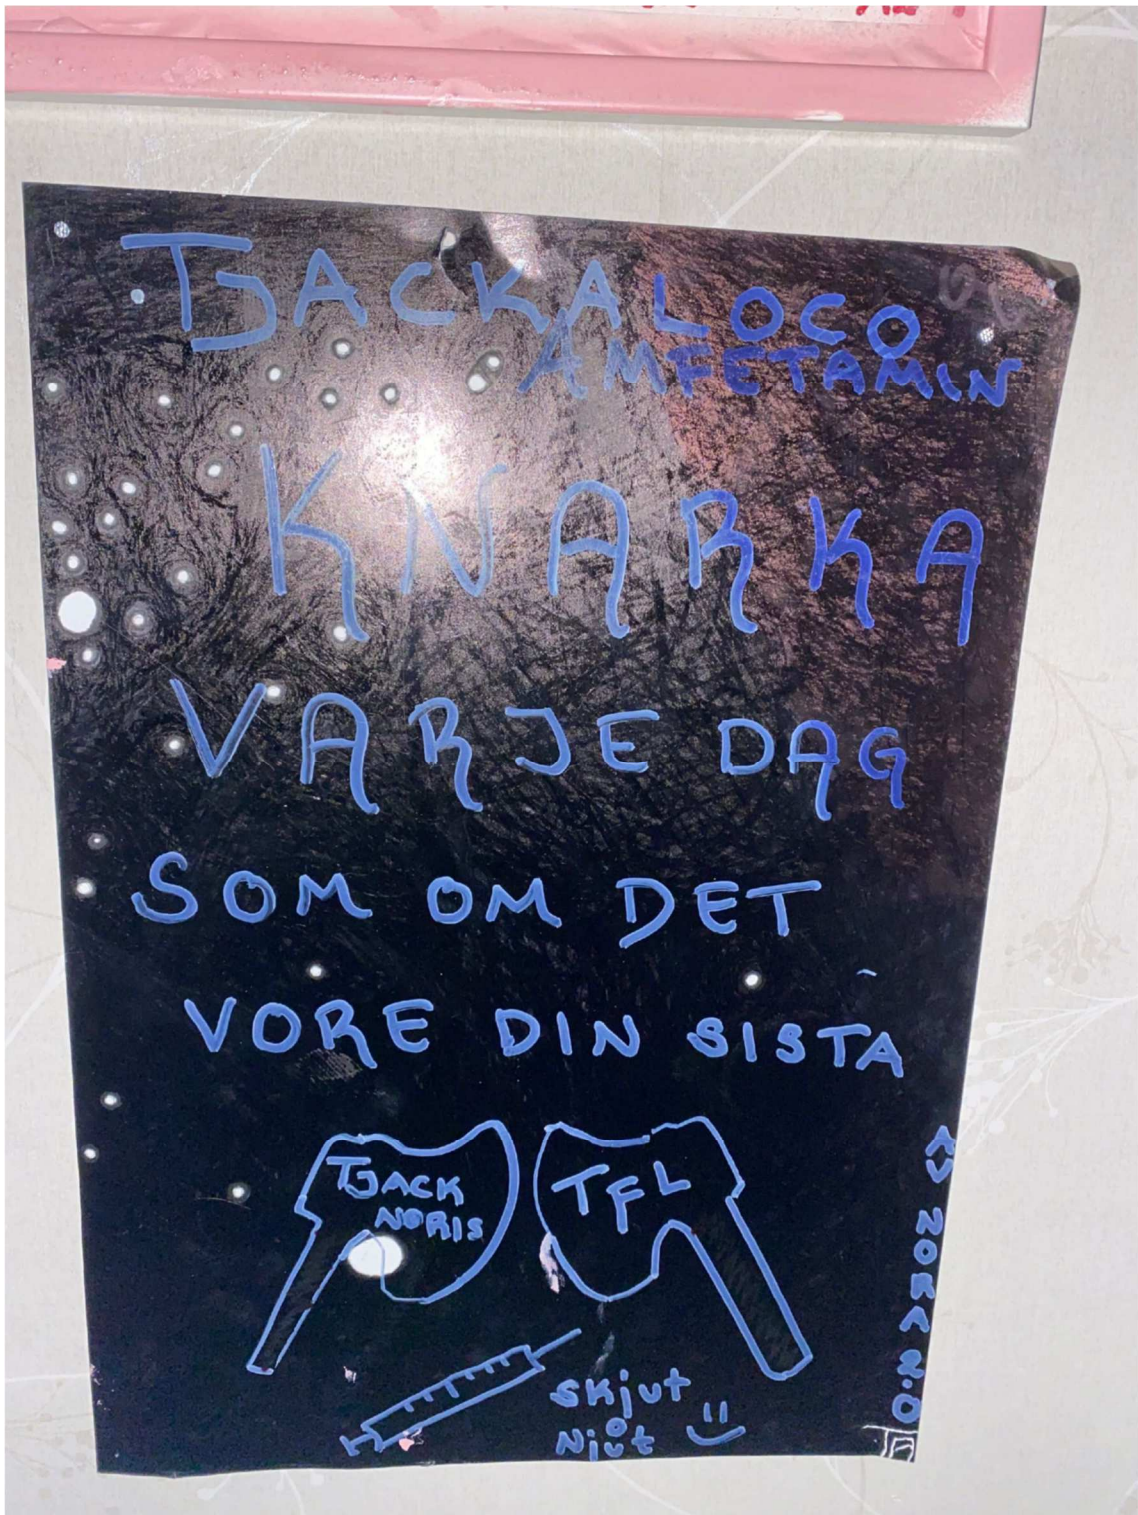 TJACKA LOCO
AMFETAMIN
KNARKA
VARJE DAG
SOM OM DET
VORE DIN SISTA
TJACK
NORIS
TFL
SKjut
o
Njut
AV NORA 2.0